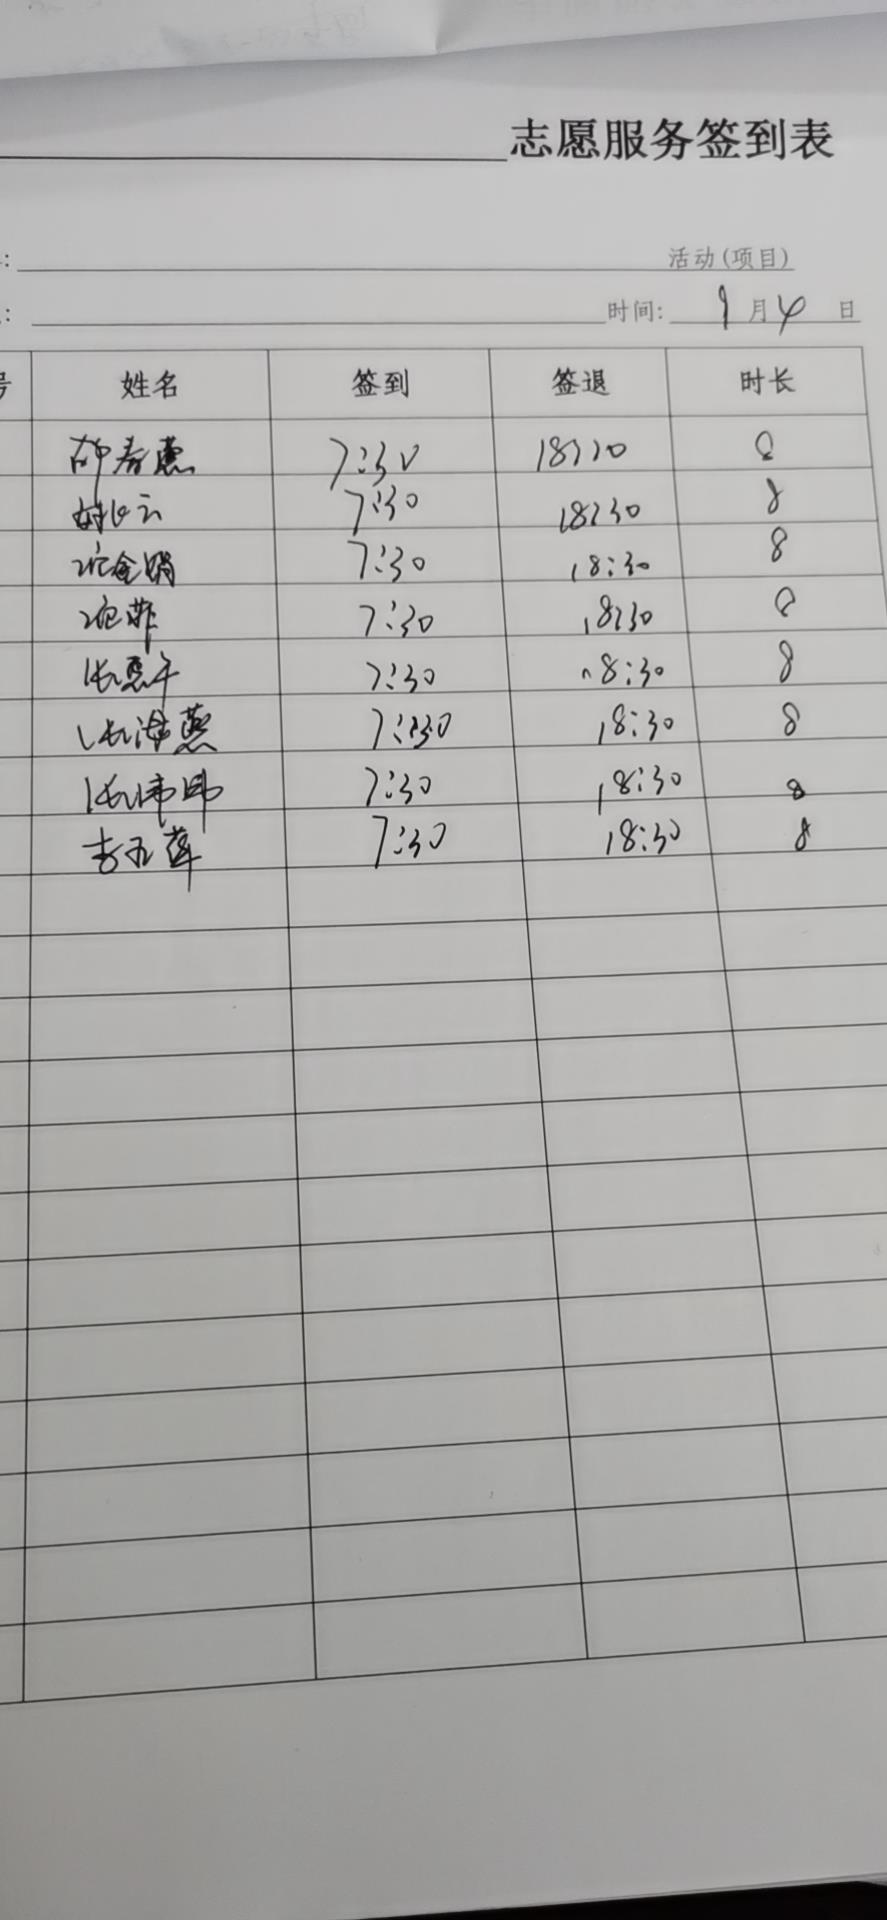 志愿服务签到表
: 活动(项目)
: 时间: 9月4日
号 姓名 签到 签退 时长
7:30 18:30 8
7:30 18:30 8
金娟 7:30 18:30 8
菲 7:30 18:30 8
张惠平 7:30 18:30 8
张海燕 7:30 18:30 8
张 7:30 18:30 8
李五莲 7:30 18:30 8